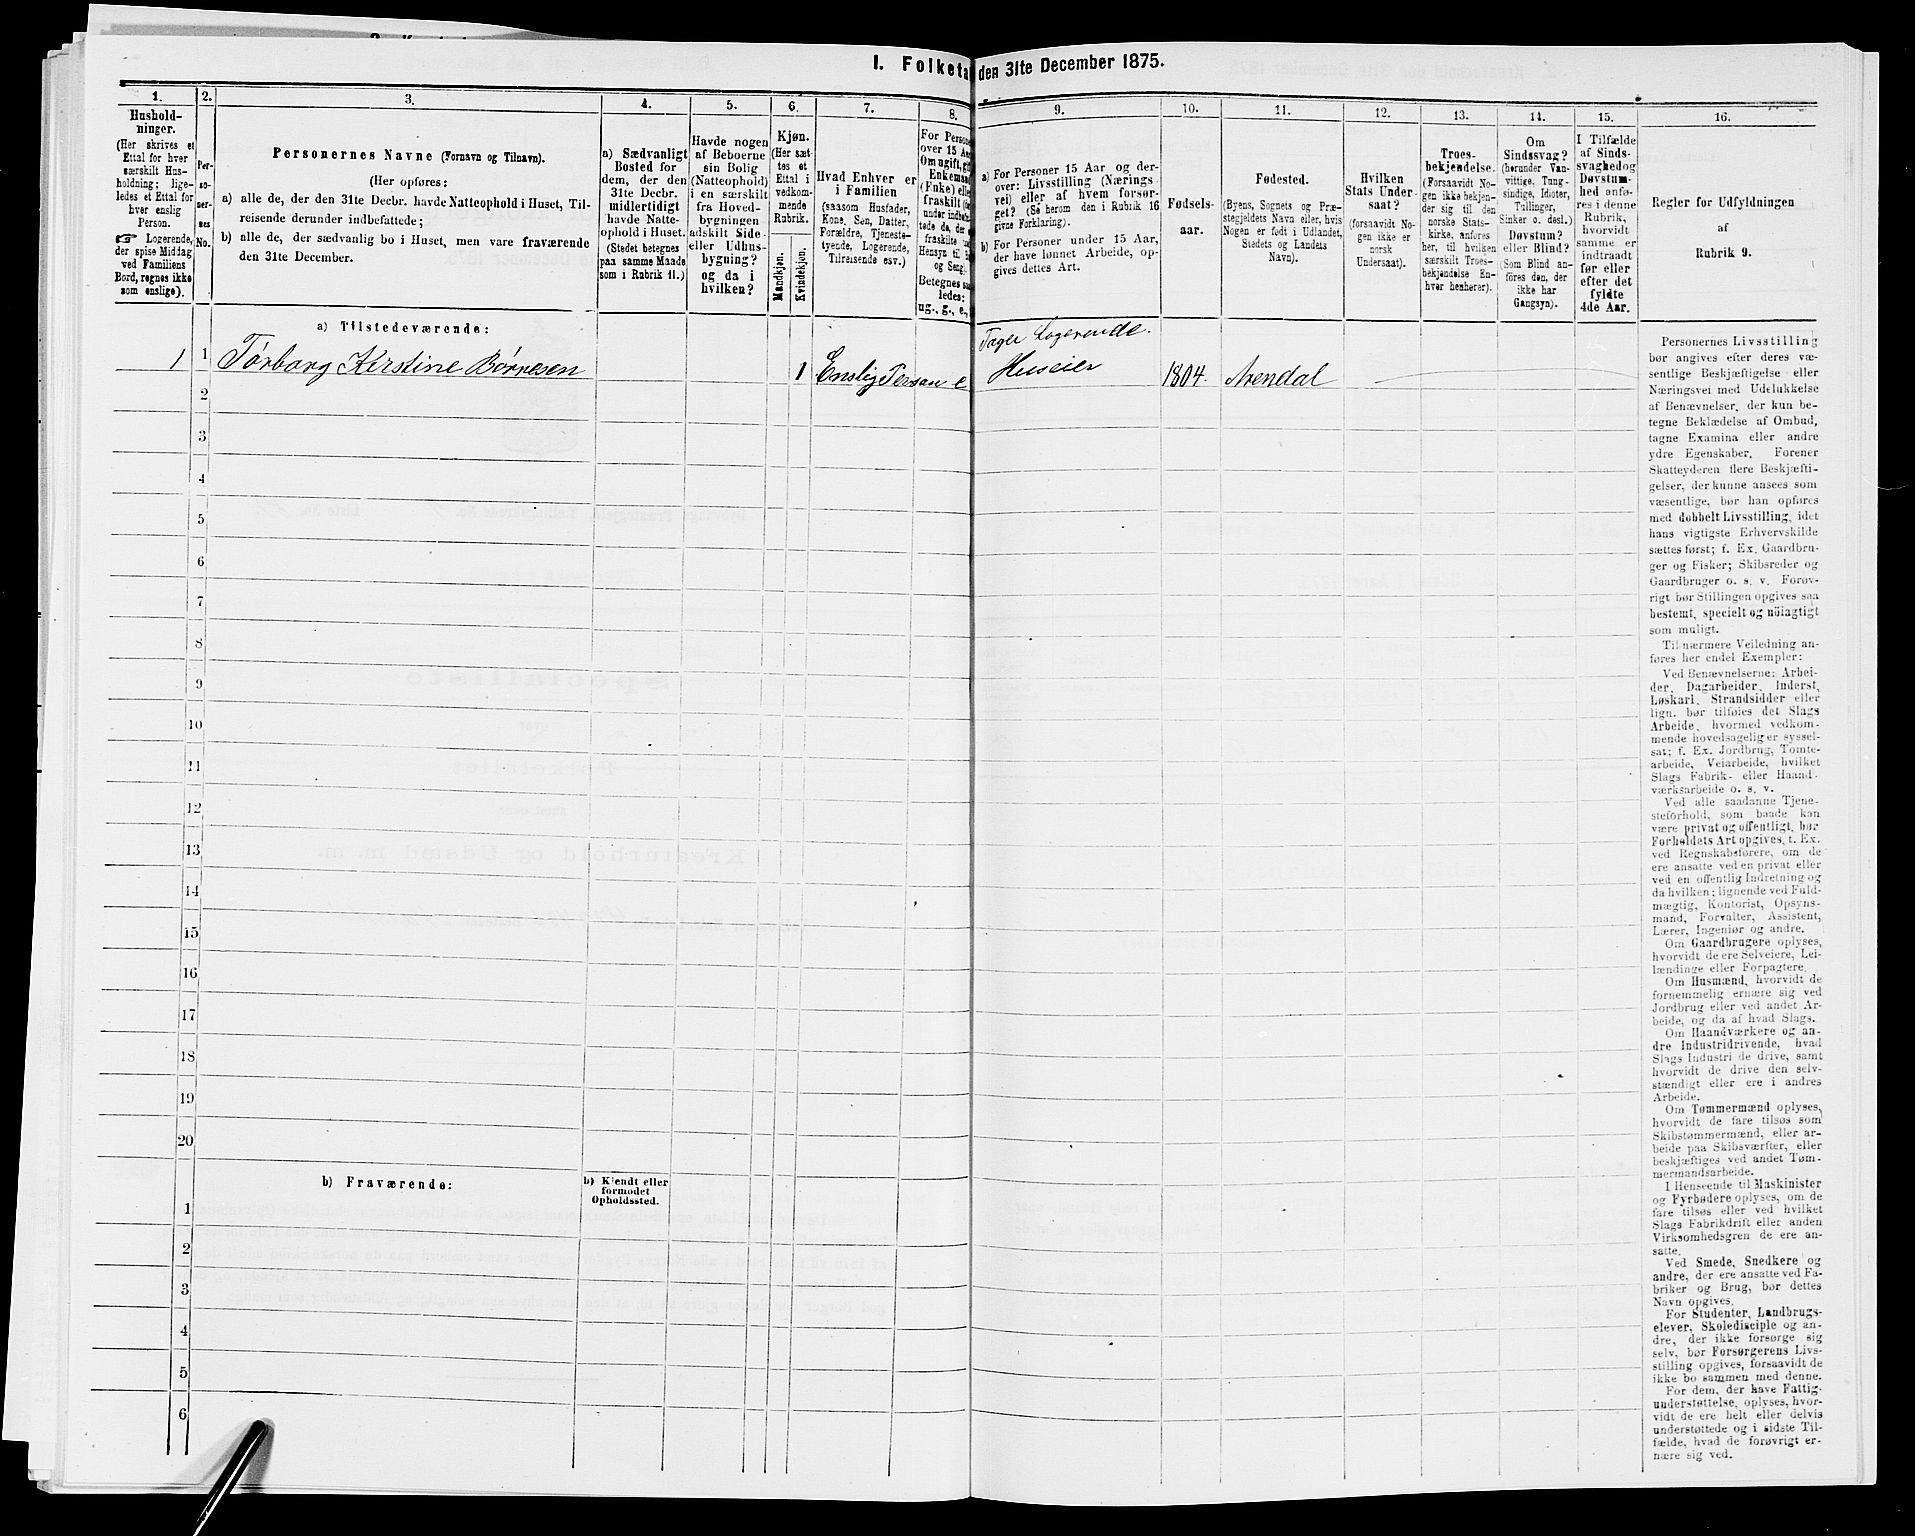 I. Folketa den 31te December 1875.
1. 2. 3. 4. 5. 6. 7. 8. 9. 10. 11. 12. 13. 14. 15. 16.
Hushold-
ninger.
(Her skrives et
Ettal for hver
særskilt Hus-
holdning; lige-
ledes et Ettal for
hver enslig
Person.
☞ Logerende,
der spise Middag
ved Familiens
Bord, regnes ikke
som enslige).
Per-
so-
ner-
nes
No.
Personernes Navne (Fornavn og Tilnavn).
(Her opføres:
a) alle de, der den 31te Decbr. havde Natteophold i Huset, Til-
reisende derunder indbefattede;
b) alle de, der sædvanlig bo i Huset, men vare fraværende
den 31te December.
a) Sædvanligt
Bosted for
dem, der den
31te Decbr.
midlertidigt
havde Natte-
ophold i Huset.
(Stedet betegnes
paa samme Maade
som i Rubrik 11.)
Havde nogen
af Beboerne
sin Bolig
(Natteophold)
i en særskilt
fra Hoved-
bygningen
adskilt Side-
eller Udhus-
bygning?
og da i
hvilken?
Kjøn.
(Her sæt-
tes et
Ettal i
vedkom-
mende
Rubrik.
Mandkjøn.
Kvindekjøn.
Hvad Enhver er
i Familien
(saasom Husfader,
Kone, Søn, Datter,
Forældre, Tjeneste-
tyende, Logerende,
Tilreisende osv.)
For Persone
over 15 Aa
Om ugift, gi
Enkema
(Enke) elle
fraskilt
under indbe
tede de, der
fraskilte
Hensyn til B
og Seng.
Betegnes sa
ledes:
ug., g., e.,
a) For Personer 15 Aar og der-
over: Livsstilling (Nærings
vei) eller af hvem forsør-
get? (Se herom den i Rubrik 16
givne Forklaring).
b) For Personer under 15 Aar,
der have lønnet Arbeide, op-
gives dettes Art.
Fødsels-
aar.
Fødested.
(Byens, Sognets og Præ-
stegjeldets Navn eller, hvis
Nogen er født i Udlandet,
Stedets og Landets
Navn).
Hvilken
Stats Under-
saat?
(forsaavidt No-
gen ikke er
norsk
Undersaat).
Troes-
bekjendelse.
(Forsaavidt No-
gen ikke bekjen-
der sig til den
norske Stats-
kirke, anføres
her, til hvilken
særskilt Troes-
bekjendelse En-
hver henhører).
Om
Sindssvag?
(herunder Van-
vittige, Tung-
sindige, Idioter,
Tullinger,
Sinker o. desl.)
Døvstum?
eller Blind?
(Som Blind an-
føres den, der
ikke har
Gangsyn).
I Tilfælde
af Sinds-
svaghed og
Døvstum-
hed anfø-
res i denne
Rubrik,
hvorvidt
samme er
indtraadt
før eller
efter det
fyldte
4de Aar.
Regler for Udfyldningen
af
Rubrik 9.
a) Tilstedeværende:
Tager Logerende.
1 1 Torborg Kirstine Børresen 1 Enslig Person e Huseier 1804. Arendal
2
3
4
5
6
7
8
9
10
11
12
13
14
15
16
17
18
19
20
b) Fraværende:
b) Kjendt eller
formodet
Opholdssted.
1
2
3
4
5
6
Personernes Livsstilling
bør angives efter deres væ-
sentlige Beskjæftigelse eller
Næringsvei med Udelukkelse
af Benævnelser, der kun be-
tegne Beklædelse af Ombud,
tagne Examina eller andre
ydre Egenskaber. Forener
Skatteyderen flere Beskjæfti-
gelser, der kunne ansees som
væsentlige, bør han opføres
med dobbelt Livsstilling, idet
hans vigtigste Erhvervskilde
sættes først; f. Ex. Gaardbru-
ger og Fisker; Skibsreder og
Gaardbruger o. s. v. Forøv-
rigt bør Stillingen opgives saa
bestemt, specielt og nöiagtigt
som muligt.
Til nærmere Veiledning an-
føres her endel Exempler:
Ved Benævnelserne: Arbei-
der, Dagarbeider, Inderst,
Løskarl, Strandsidder eller
lign. bør tilføies det Slags
Arbeide, hvormed vedkom-
mende hovedsagelig er syssel-
sat; f. Ex. Jordbrug, Tomte-
arbeide, Veiarbeide, hvilket
Slags Fabrik- eller Haand-
værksarbeide o. s. v.
Ved alle saadanne Tjene-
steforhold, som baade kan
være privat og offentligt, bør
Forholdets Art opgives, t. Ex.
ved Regnskabsførere, om de
ere ansatte ved en privat eller
ved en offentlig Indretning og
da hvilken; lignende ved Fuld-
mægtig, Kontorist, Opsyns-
mand, Forvalter, Assistent,
Lærer, Ingeniør og andre.
Om Gaardbrugere oplyses,
hvorvidt de ere Selveiere, Lei-
lændinge eller Forpagtere.
Om Husmænd, hvorvidt de
fornemmelig ernære sig ved
Jordbrug eller ved andet Ar-
beide, og da af hvad Slags.
Om Haandværkere og an-
dre Industridrivende, hvad
Slags Industri de drive, samt
hvorvidt de drive den selv-
stændigt eller ere i andres
Arbeide.
Om Tømmermænd oplyses,
hvorvidt de fare tilsøs som
Skibstømmermænd, eller ar-
beide paa Skibsværfter, eller
beskjæftiges ved andet Tøm-
mermandsarbeide.
I Henseende til Maskinister
og Fyrbødere oplyses, om de
fare tilsøs eller ved hvilket
Slags Fabrikdrift eller anden
Virksomhedsgren de ere an-
satte.
Ved Smede, Snedkere og
andre, der ere ansatte ved Fa-
briker og Brug, bør dettes
Navn opgives.
For Studenter, Landbrugs-
elever, Skoledisciple og an-
dre, der ikke forsørge sig
selv, bør Forsørgerens Livs-
stilling opgives, forsaavidt de
ikke bo sammen med denne.
For dem, der have Fattig-
understøttelse, oplyses, hvor-
vidt de ere helt eller delvis
understøttede og i sidste Til-
fælde, hvad de forøvrigt er-
nære sig ved.